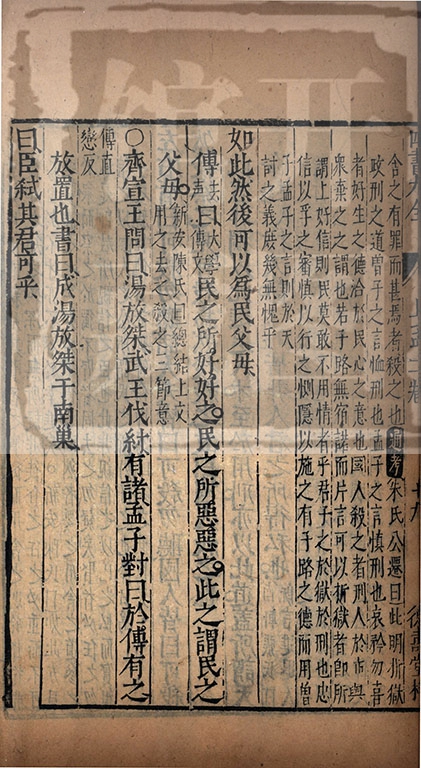 舍之有罪而甚焉者殺之也通考朱氏公遷曰此明折獄
政刑之道曾子之言恤刑也孟子之言慎刑也哀矜勿喜
者好生之德洽於民心之意也國人殺之者刑人於市與
衆棄之之謂也若子路無宿諾而片言可以折獄者即所
謂上好信則民莫敢不用情者乎君子之於獄於刑也忠
信以孚之審慎以行之惻隱以施之有子路之德而用曾
子孟子之言則於天
討之義庶幾無愧乎
如此然後可以為民父毋
傳去聲曰大學傳文民之所好好之民之所惡惡之此之謂民之
父毋新安陳氏曰總結上文用之去之殺之三節意
○齊宣王問曰湯放桀武王伐紂有諸孟子對曰於傳有之
傳直
戀反
放置也書曰成湯放桀于南巢
曰臣弒其君可乎